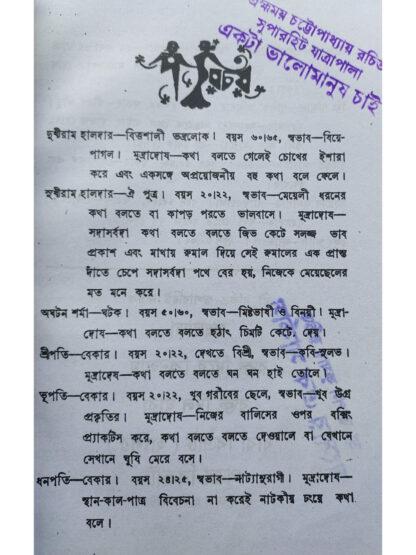 ব্রহ্মময় চট্টোপাধ্যায় রচিত
সুপারহিট যাত্রাপালা
একটা ভালোমানুষ চাই
পরিচয়
দুখীরাম হালদার—বিত্তশালী ভদ্রলোক। বয়স ৬০/৬৫, স্বভাব—বিয়ে-
পাগল। মুদ্রাদোষ—কথা বলতে গেলেই চোখের ইশারা
করে এবং একসঙ্গে অপ্রয়োজনীয় বহু কথা বলে ফেলে।
সুখীরাম হালদার—ঐ পুত্র। বয়স ২০/২২, স্বভাব—মেয়েলী ধরনের
কথা বলতে বা কাপড় পরতে ভালবাসে। মুদ্রাদোষ—
সদাসর্বদা কথা বলতে বলতে জিভ কেটে সলজ্জ ভাব
প্রকাশ এবং মাথায় রুমাল দিয়ে সেই রুমালের এক প্রান্ত
দাঁতে চেপে সদাসর্বদা পথে বের হয়, নিজেকে মেয়েছেলের
মত মনে করে।
অঘটন শর্মা—ঘটক। বয়স ৫০/৬০, স্বভাব—মিষ্টভাষী ও বিনয়ী। মুদ্রা-
দোষ—কথা বলতে বলতে হঠাৎ চিমটি কেটে দেয়।
শ্রীপতি—বেকার। বয়স ২০/২২, দেখতে বিশ্রী, স্বভাব—কবি-সুলভ।
মুদ্রাদোষ—কথা বলতে বলতে ঘন ঘন হাই তোলে।
ভূপতি—বেকার। বয়স ২০/২২, খুব গরীবের ছেলে, স্বভাব—খুব উগ্র
প্রকৃতির। মুদ্রাদোষ—নিজের বালিসের ওপর বক্সিং
প্র্যাকটিস করে, কথা বলতে বলতে দেওয়ালে বা যেখানে
সেখানে ঘুষি মেরে বসে।
ধনপতি—বেকার। বয়স ২৪/২৫, স্বভাব—নাট্যানুরাগী। মুদ্রাদোষ—
স্থান-কাল-পাত্র বিবেচনা না করেই নাটকীয় ঢংয়ে কথা
বলে।